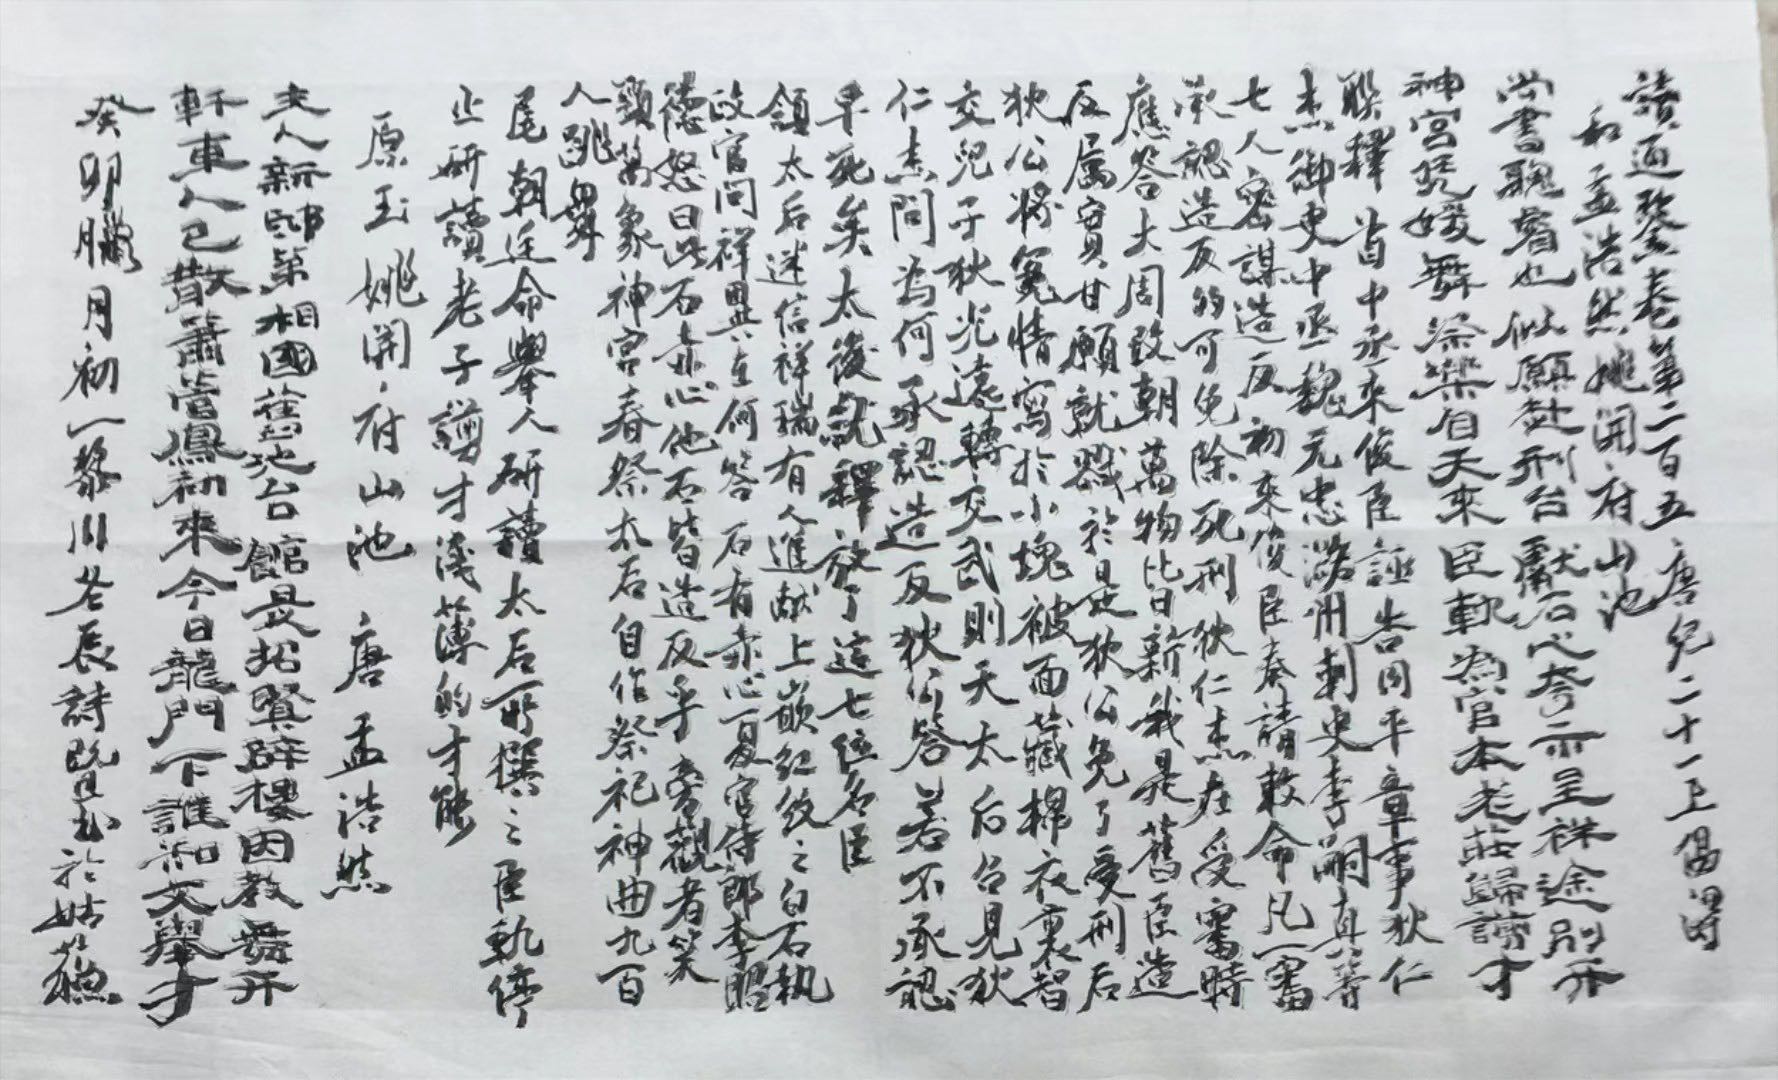 讀通鑒卷第二百五 唐紀二十一上 偶得
和孟浩然姚開府山池
尚書聰睿也 似願赴刑台 獻石心夸示 呈祥途别开
神宮舞 祭樂自天來 臣軌為官本 老莊歸謗才
聯釋 首中丞來俊臣誣告同平章事狄仁
杰御史中丞魏元忠潞州刺史李嗣真等
七人密謀造反 初來俊臣奏請敕命凡一審
承認造反的可免除死刑 狄仁杰在受審時
應答大周改朝萬物比日新我是舊臣造
反属實甘願就戮 於是狄公免了受刑后
狄公将冤情寫於小塊被面藏棉衣裏智
交兒子狄光遠轉交武則天太后召見狄
仁杰問為何承認造反狄公答若不承認
早死矣太後就釋放了這七位名臣
領太后迷信祥瑞有人進献上嵌紅紋之白石執
政官問祥異在何答石有赤心夏官侍郎李昭
德怒曰此石赤心他石皆造反乎旁觀者笑
頸萬象神宮春祭太后自作祭祀神曲九百
人跳舞
尾朝廷命舉人研讀太后所撰之臣軌停
止研讀老子 才淺薄的才能
原玉 姚開府山池 唐 孟浩然
主人新邸第 相國舊池台 館是招賢辟 樓因教舞开
軒車人已散 簫管鳳初來 今日龍門下 誰知文舉才
癸卯臘月初一黎川老辰詩暨書於姑蘇